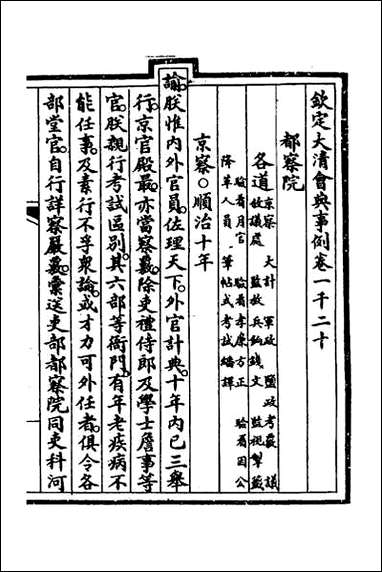 欽定大清會典事例卷一千二十
都察院
各道 京察 大計 軍政 鹽政考覈 議
敘議處 監放兵餉錢文 監視掣籤
驗看月官 驗看孝廉方正 驗看因公
降革人員 筆帖式考試繙譯
京察○順治十年
諭。朕惟內外官員。佐理天下。外官計典。十年內已三舉
行。京官殿最。亦當察覈。除吏禮侍郎及學士詹事等
官。朕親行考試區別。其六部等衙門。有年老疾病不
能任事。及素行不孚衆論。或才力可外任者。俱令各
部堂官。自行詳察嚴覈。彙送吏部都察院同吏科河